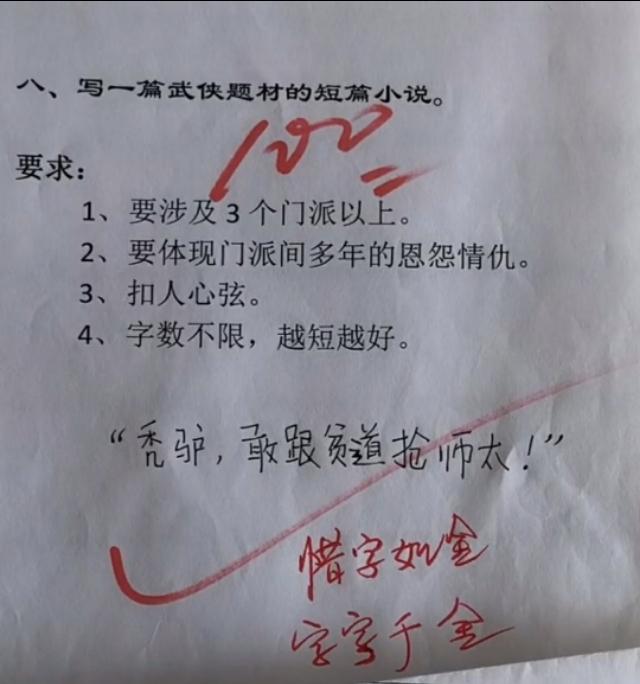 八、写一篇武侠题材的短篇小说。
100
要求:
1、要涉及3个门派以上。
2、要体现门派间多年的恩怨情仇。
3、扣人心弦。
4、字数不限，越短越好。
“秃驴，敢跟贫道抢师太！”
惜字如金
字字千金